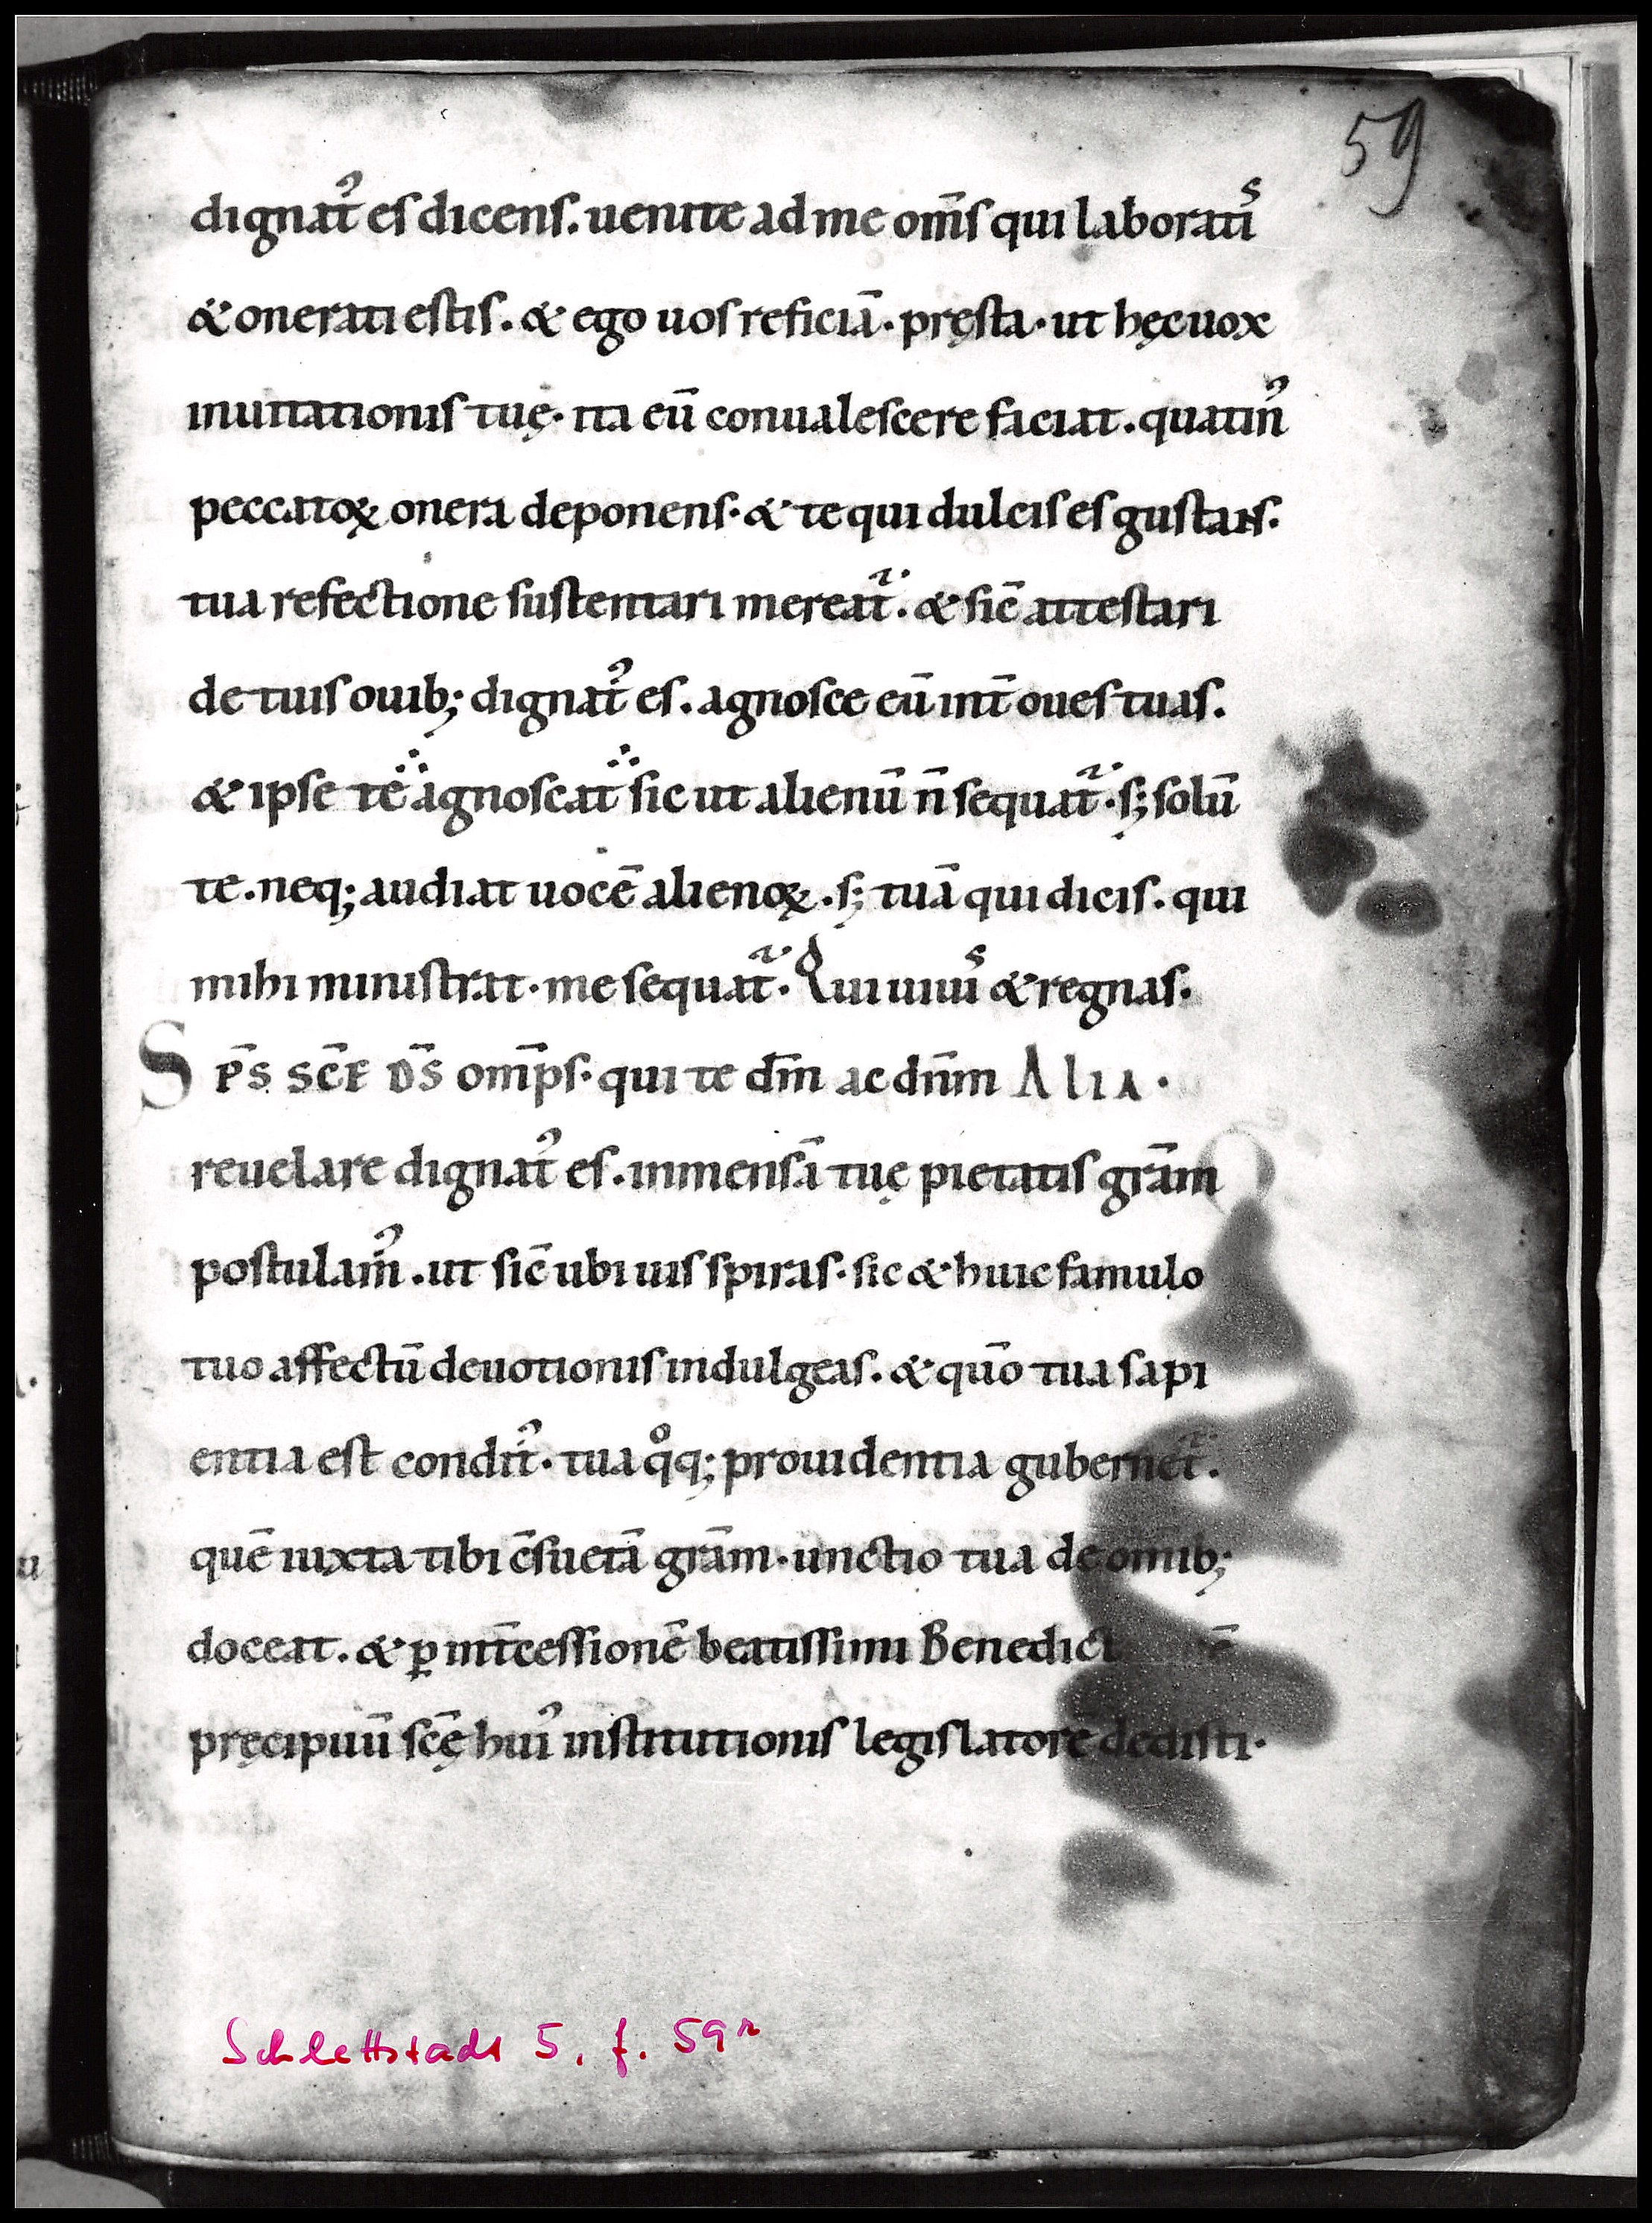 59
dignat᷒ es dicens. uenite ad me om̄s qui laborati^s
& onerati estis. & ego uos reficiā. pręsta. ut hęc uox
inuitationis tuę. ita eū conualescere faciat. quatin᷒
peccatoꝝ onera deponens. & te qui dulcis es gustans.
tua refectione sustentari mereat᷑. & sic̄ attestari
de tuis ouib; dignat᷒ es. agnosce eū int̄ oues tuas.
& ipse te agnoscat sic ut alienū n̄ sequat᷑. s; solū
te. neq; audiat uocē alienoꝝ. s; tuā qui dicis. qui
mihi ministrat. me sequat᷑. Qui uiui^s & regnas.
SP̄S SC̄E D̄S om̄ps. qui te dm̄ ac dn̄m ALIA.
reuelare dignat᷒ es. inmensā tuę pietatis gr̄am
postulam᷒. ut sic̄ ubi uis spiras. sic & huic famulo
tuo affectū deuotionis indulgeas. & quō tua sapi
entia est condit᷒. tua qͦq; prouidentia gubernet᷑.
quē iuxta tibi c̄suetā gr̄am. unctio tua de omīb;
doceat. & ꝑ int̄cessionē beatissimi Benedict
pręcipuū sc̄ę hui᷒ institutionis legislatore dedisti.
Schlettstadt 5, f. 59ʳ